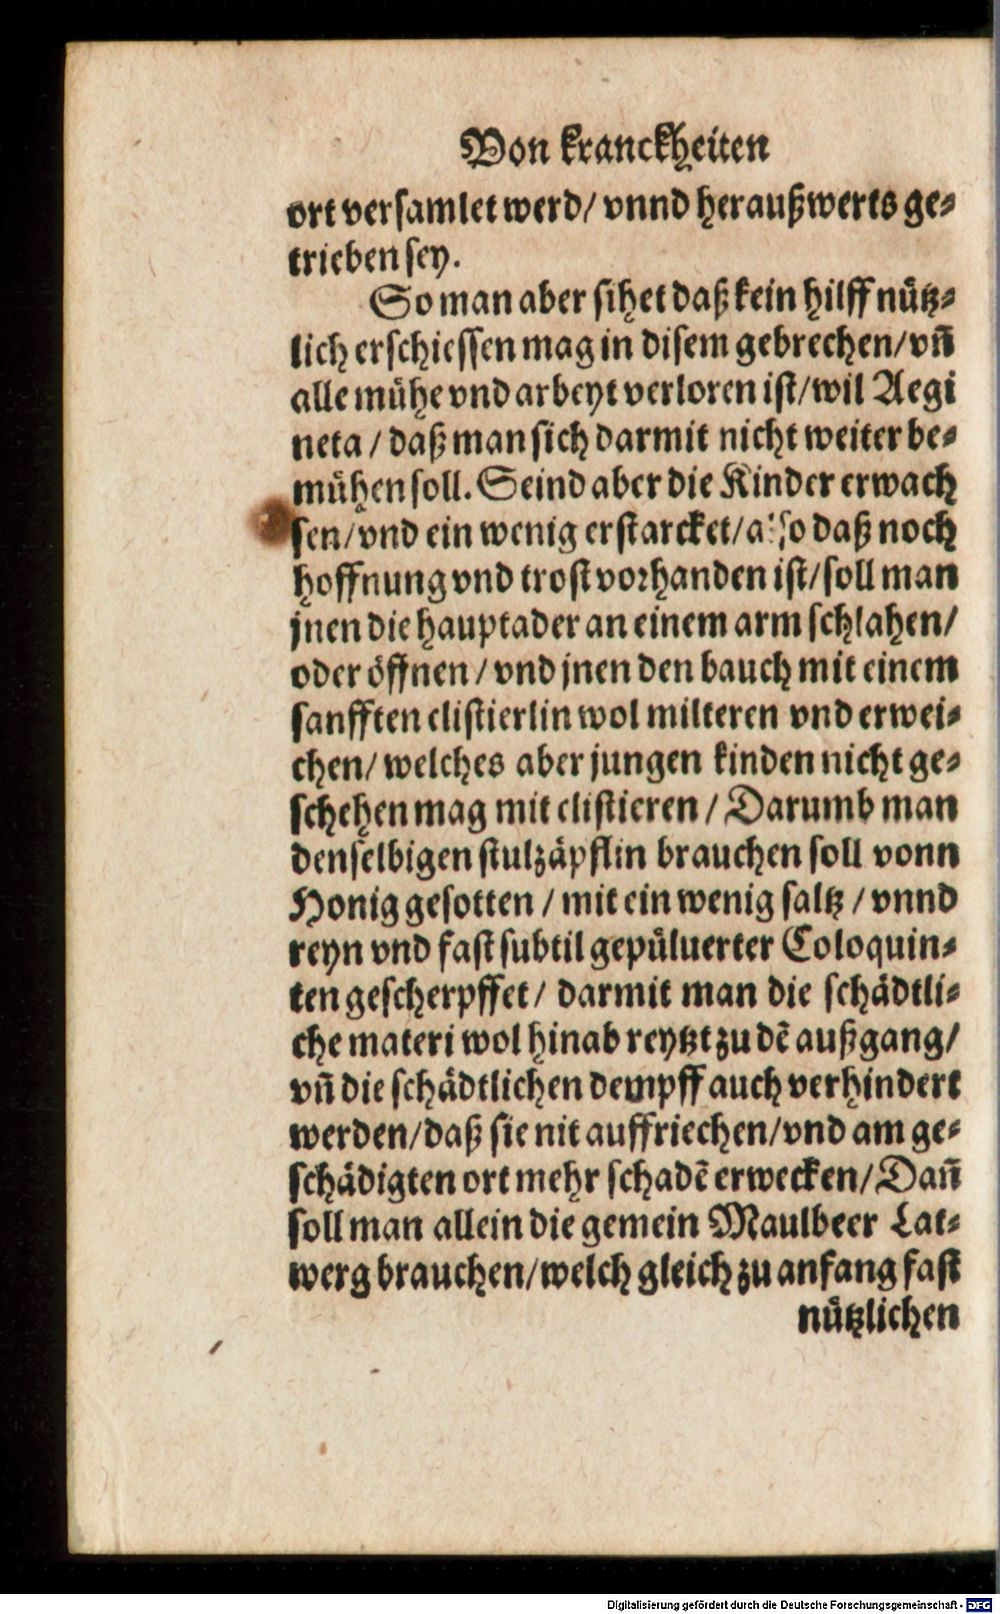 Von kranckheiten
ort versamlet werd/ vnnd heraußwerts ge⸗
trieben sey.
So man aber sihet daß kein hilff nuͤtz⸗
lich erschiessen mag in disem gebrechen/ vñ
alle muͤhe vnd arbeyt verloren ist/ wil Aegi
neta / daß man sich darmit nicht weiter be⸗
muͤhen soll. Seind aber die Kinder erwach
sen/ vnd ein wenig erstarcket/ also daß noch
hoffnung vnd trost vorhanden ist/ soll man
jnen die hauptader an einem arm schlahen/
oder oͤffnen / vnd jnen den bauch mit einem
sanfften clistierlin wol milteren vnd erwei⸗
chen/ welches aber jungen kinden nicht ge⸗
schehen mag mit clistieren / Darumb man
denselbigen stulzaͤpflin brauchen soll vonn
Honig gesotten / mit ein wenig saltz / vnnd
reyn vnd fast subtil gepuͤluerter Coloquin⸗
ten gescherpffet/ darmit man die schaͤdtli⸗
che materi wol hinab reytzt zu dẽ außgang/
vñ die schaͤdtlichen dempff auch verhindert
werden/ daß sie nit auffriechen/ vnd am ge⸗
schaͤdigten ort mehr schadẽ erwecken/ Dañ
soll man allein die gemein Maulbeer Lat⸗
werg brauchen/ welch gleich zu anfang fast
nuͤtzlichen
Digitalisierung gefördert durch die Deutsche Forschungsgemeinschaft - DFG